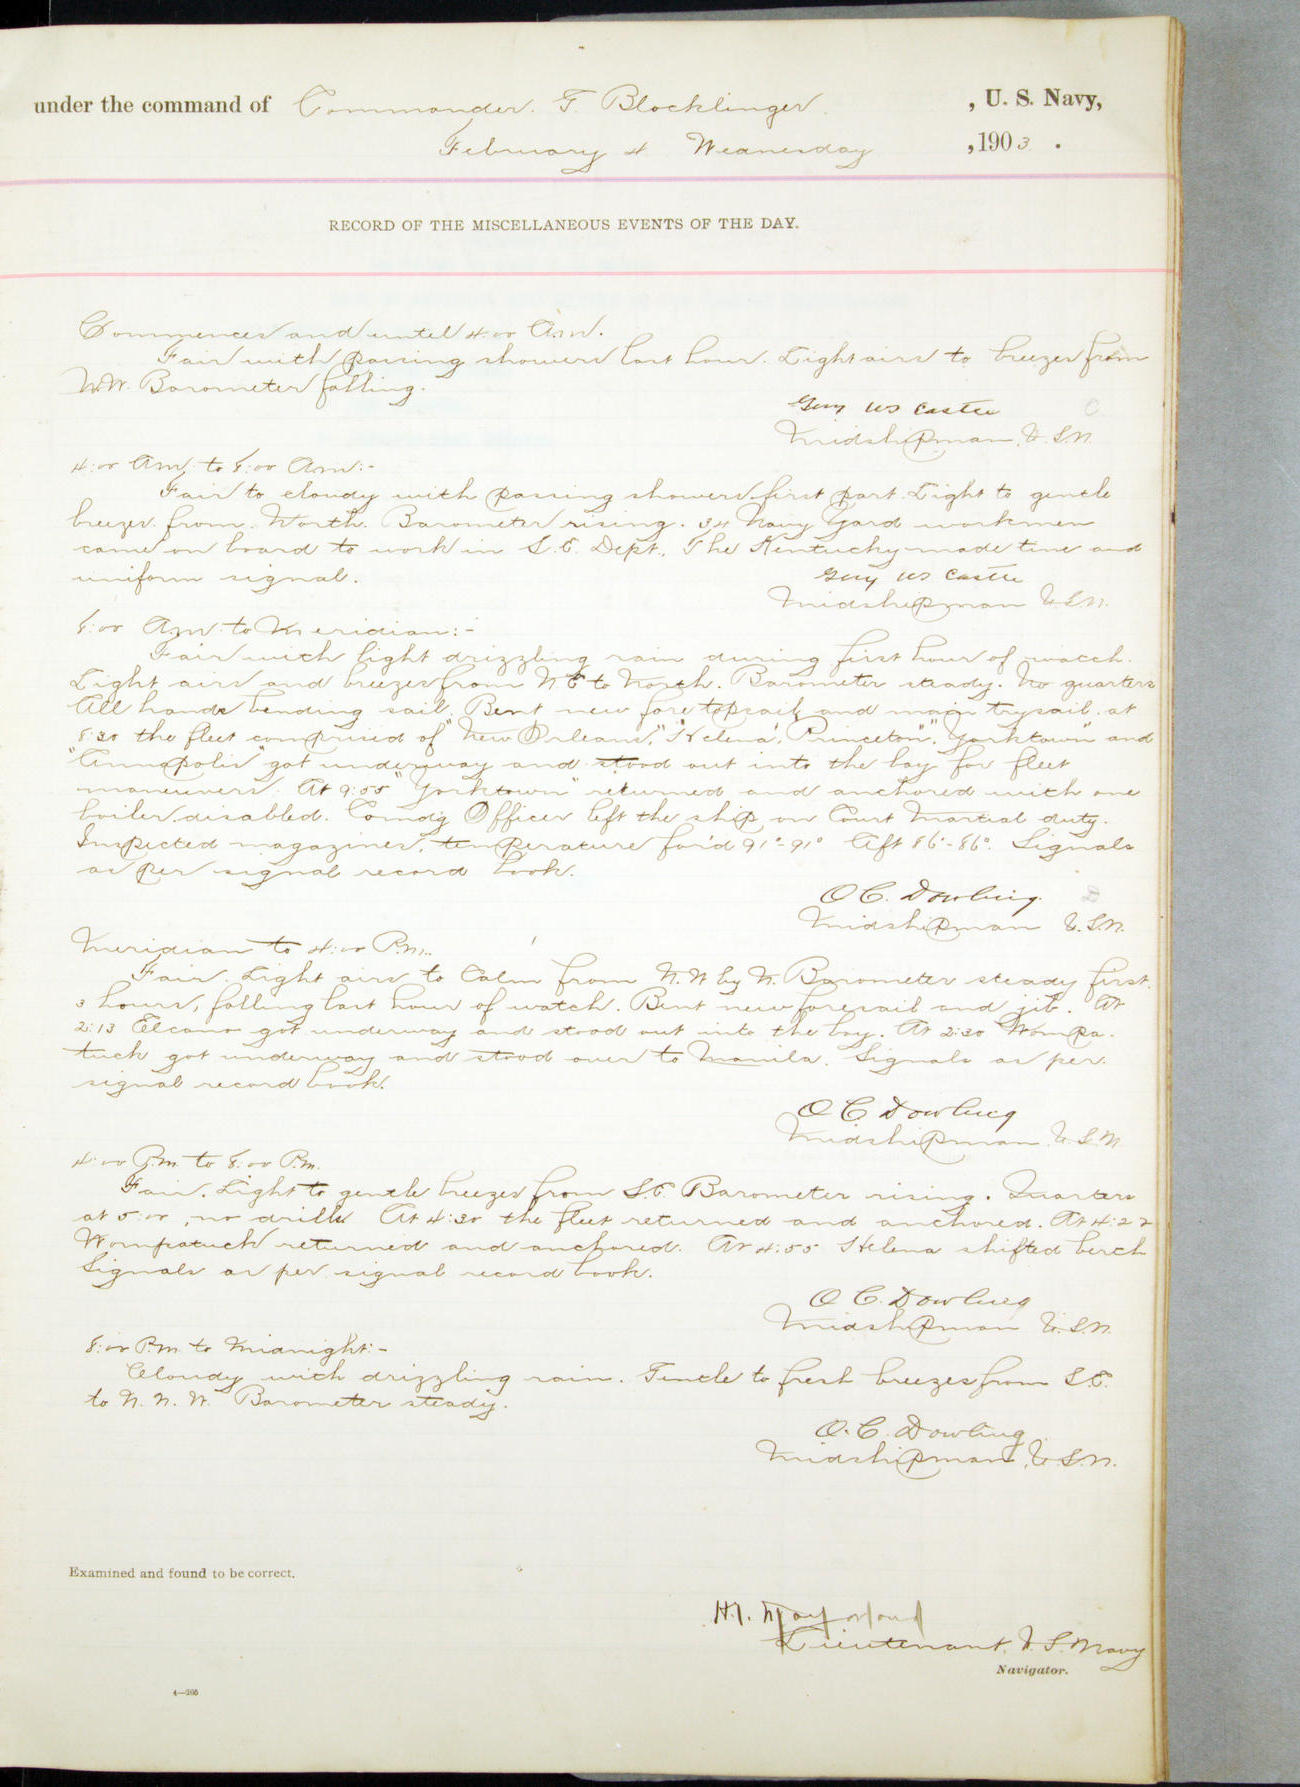 under the command of Commander. G. Blocklinger. , U. S. Navy,
February 4 Wednesday , 1903 .
RECORD OF THE MISCELLANEOUS EVENTS OF THE DAY.
Commences and until 4:00 A.m.
Fair with passing showers last hour. Light airs to breezes from
N.W. Barometer falling.
Guy W S Castle
Midshipman, U.S.N.
4:00 Am, to 8:00 Am:-
Fair to cloudy with passing showers first part. Light to gentle
breezes from North. Barometer rising. 34 Navy Yard workmen
came on board to work in S.E. Dept. The Kentucky made time and
uniform signal.
Guy W S Castle
Midshipman U.S.N.
8:00 A.m. to Meridian:-
Fair with light drizzling rain during first hour of watch.
Light airs and breezes from N E to North. Barometer steady. No quarters
All hands bending sail. Bent new fore topsail and main trysail. at
8:30 the fleet comprised of "New Orleans," "Helena", Princeton", "Yorktown" and
"Annapolis" got underway and stood out into the bay for fleet
maneuvers. At 9:55 "Yorktown" returned and anchored with one
boiler disabled. Comdg Officer left the ship on Court Martial duty.
Inspected magazines, temperature for'd 91°-91° Aft 86°-86°. Signals
as per signal record book.
O C. Dowling.
Midshipman U.S.N.
Meridian to 4:00 P.m..
Fair. Light airs to Calm from N.W by N. Barometer steady first
3 hours, falling last hour of watch. Bent new foresail and jib. At
2:13 Elcano got underway and stood out into the bay. At 2:30 Wompa-
tuck got underway and stood over to Manila. Signals as per
signal record book.
O C Dowling
Midshipman U.S.N
4:00 P.m to 8:00 P.m.
Fair. Light to gentle breezes from S.E. Barometer rising. Quarters
at 5:00, no drills At 4:30 the fleet returned and anchored. At 4:22
Wompatuck returned and anchored. At 4:55 Helena shifted berth
Signals as per signal record book.
O C. Dowling
Midshipman U.S.N.
8:00 P.m to Midnight:-
Cloudy with drizzling rain. Gentle to fresh breezes from S.E.
to N. N. W. Barometer steady.
O. C. Dowling
Midshipman, U.S.N.
Examined and found to be correct.
Lieutenant, U.S. Navy
Navigator.